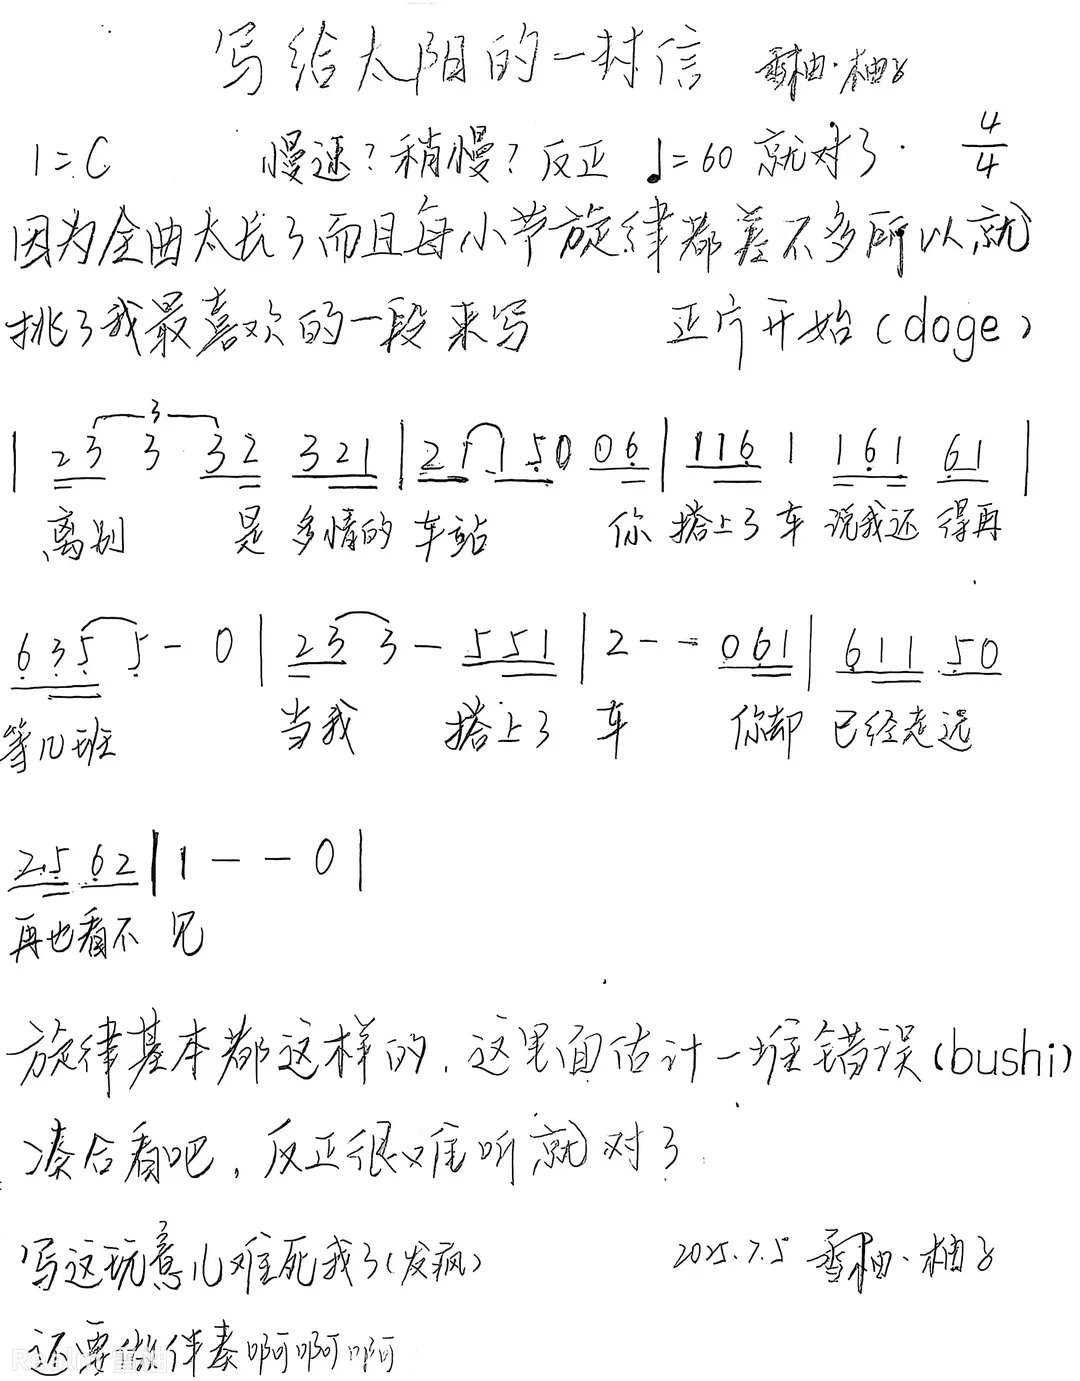 写给太阳的一封信 雪柚·柚子
1=C 慢速?稍慢?反正 ♩=60 就对了. 4/4
因为全曲太长了而且每小节旋律都差不多所以就
挑了我最喜欢的一段来写 正片开始(doge)
3
| 23 3 32 321 | 21 1 50 06 | 116 1 161 61 |
离别 是 多情的 车站 你 搭上了 车 说我还 得再
635 5 - 0 | 23 3 - 551 | 2 - - 061 | 611 50
等几班 当我 搭上了 车 你却 已经走远
2.5 62 | 1 - - 0 |
再也看不 见
旋律基本都这样的,这里面估计一堆错误(bushi)
凑合看吧,反正很难听就对了
写这玩意儿难死我了(发疯) 2025.7.5 雪柚·柚子
还要做伴奏啊啊啊